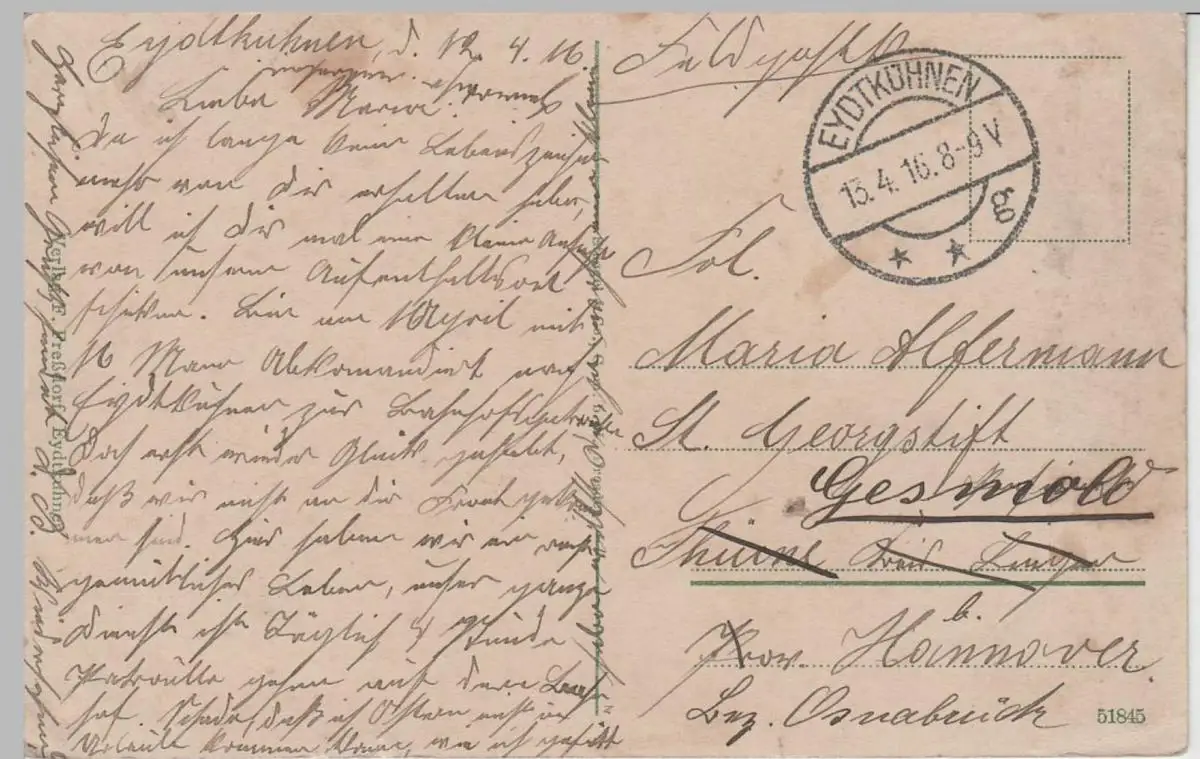 Eydtkuhnen, d. 12. 4. 16.
Liebe Maria!
Da ich lange kein Lebenszeichen
mehr von Dir erhalten habe,
will ich Dir mal eine kleine Ansicht
von unserm Aufenthaltsort
schicken. Bin am 1 April mit
16 Mann Abkomandirt nach
Eydtkuhnen zur Bahnhofswache
Doch erst wieder Glück gehabt,
daß wir nicht an die Front gekom
men sind. Hier haben wir ein recht
gemütliches Leben, unser ganze
Dienst ist Täglich 4 Stunde
Patroulle gehen auf dem Bahn
hof. Schade, daß ich Ostern nicht in
Urlaub kommen kann, wie ich gehofft
Herzlichen Gruß
Verlag F. Preßtorf, Eydtkuhnen
Feldpost
EYDTKUHNEN
13.4.16.8-9V
gg
Frl.
Maria Alfermann
St. Georgstift
Gesmold
Thuine Kreis Lingen
b.
Prov. Hannover.
Bez. Osnabrück
51845